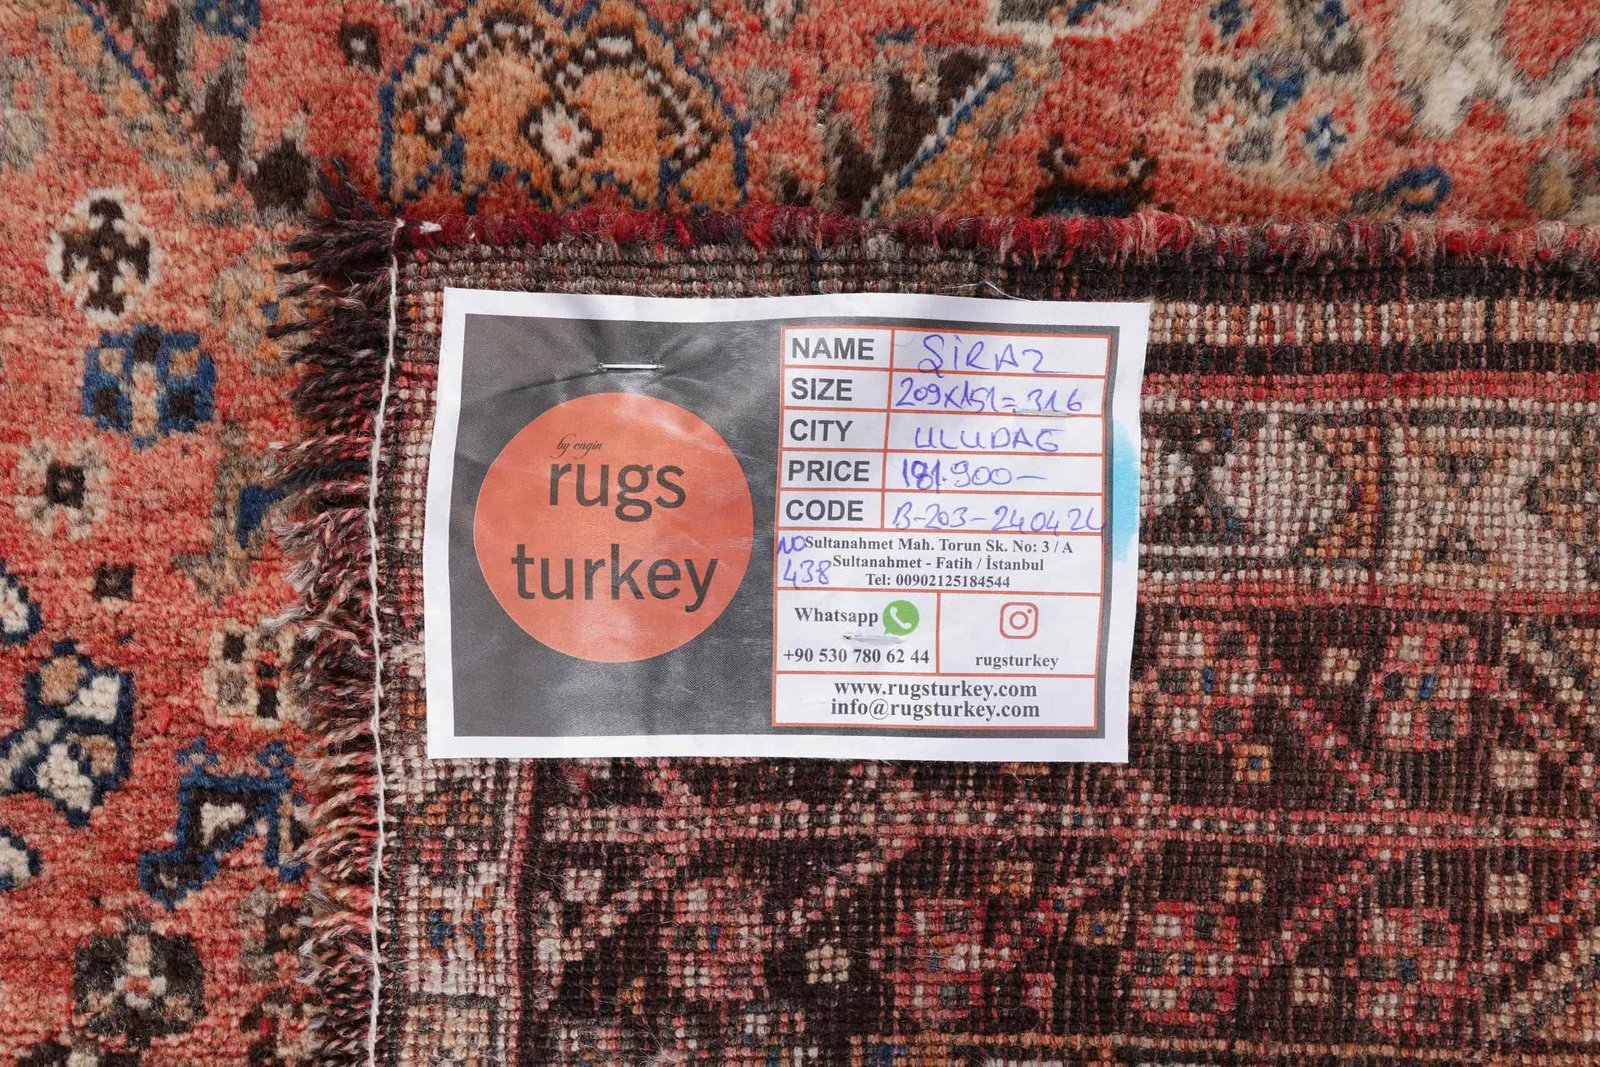 by engin
rugs
turkey
NAME ŞİRAZ
SIZE 209x151=316
CITY ULUDAG
PRICE 181.900-
CODE B-203-240424
NO
438
Sultanahmet Mah. Torun Sk. No: 3 / A
Sultanahmet - Fatih / İstanbul
Tel: 00902125184544
Whatsapp
+90 530 780 62 44
rugsturkey
www.rugsturkey.com
info@rugsturkey.com